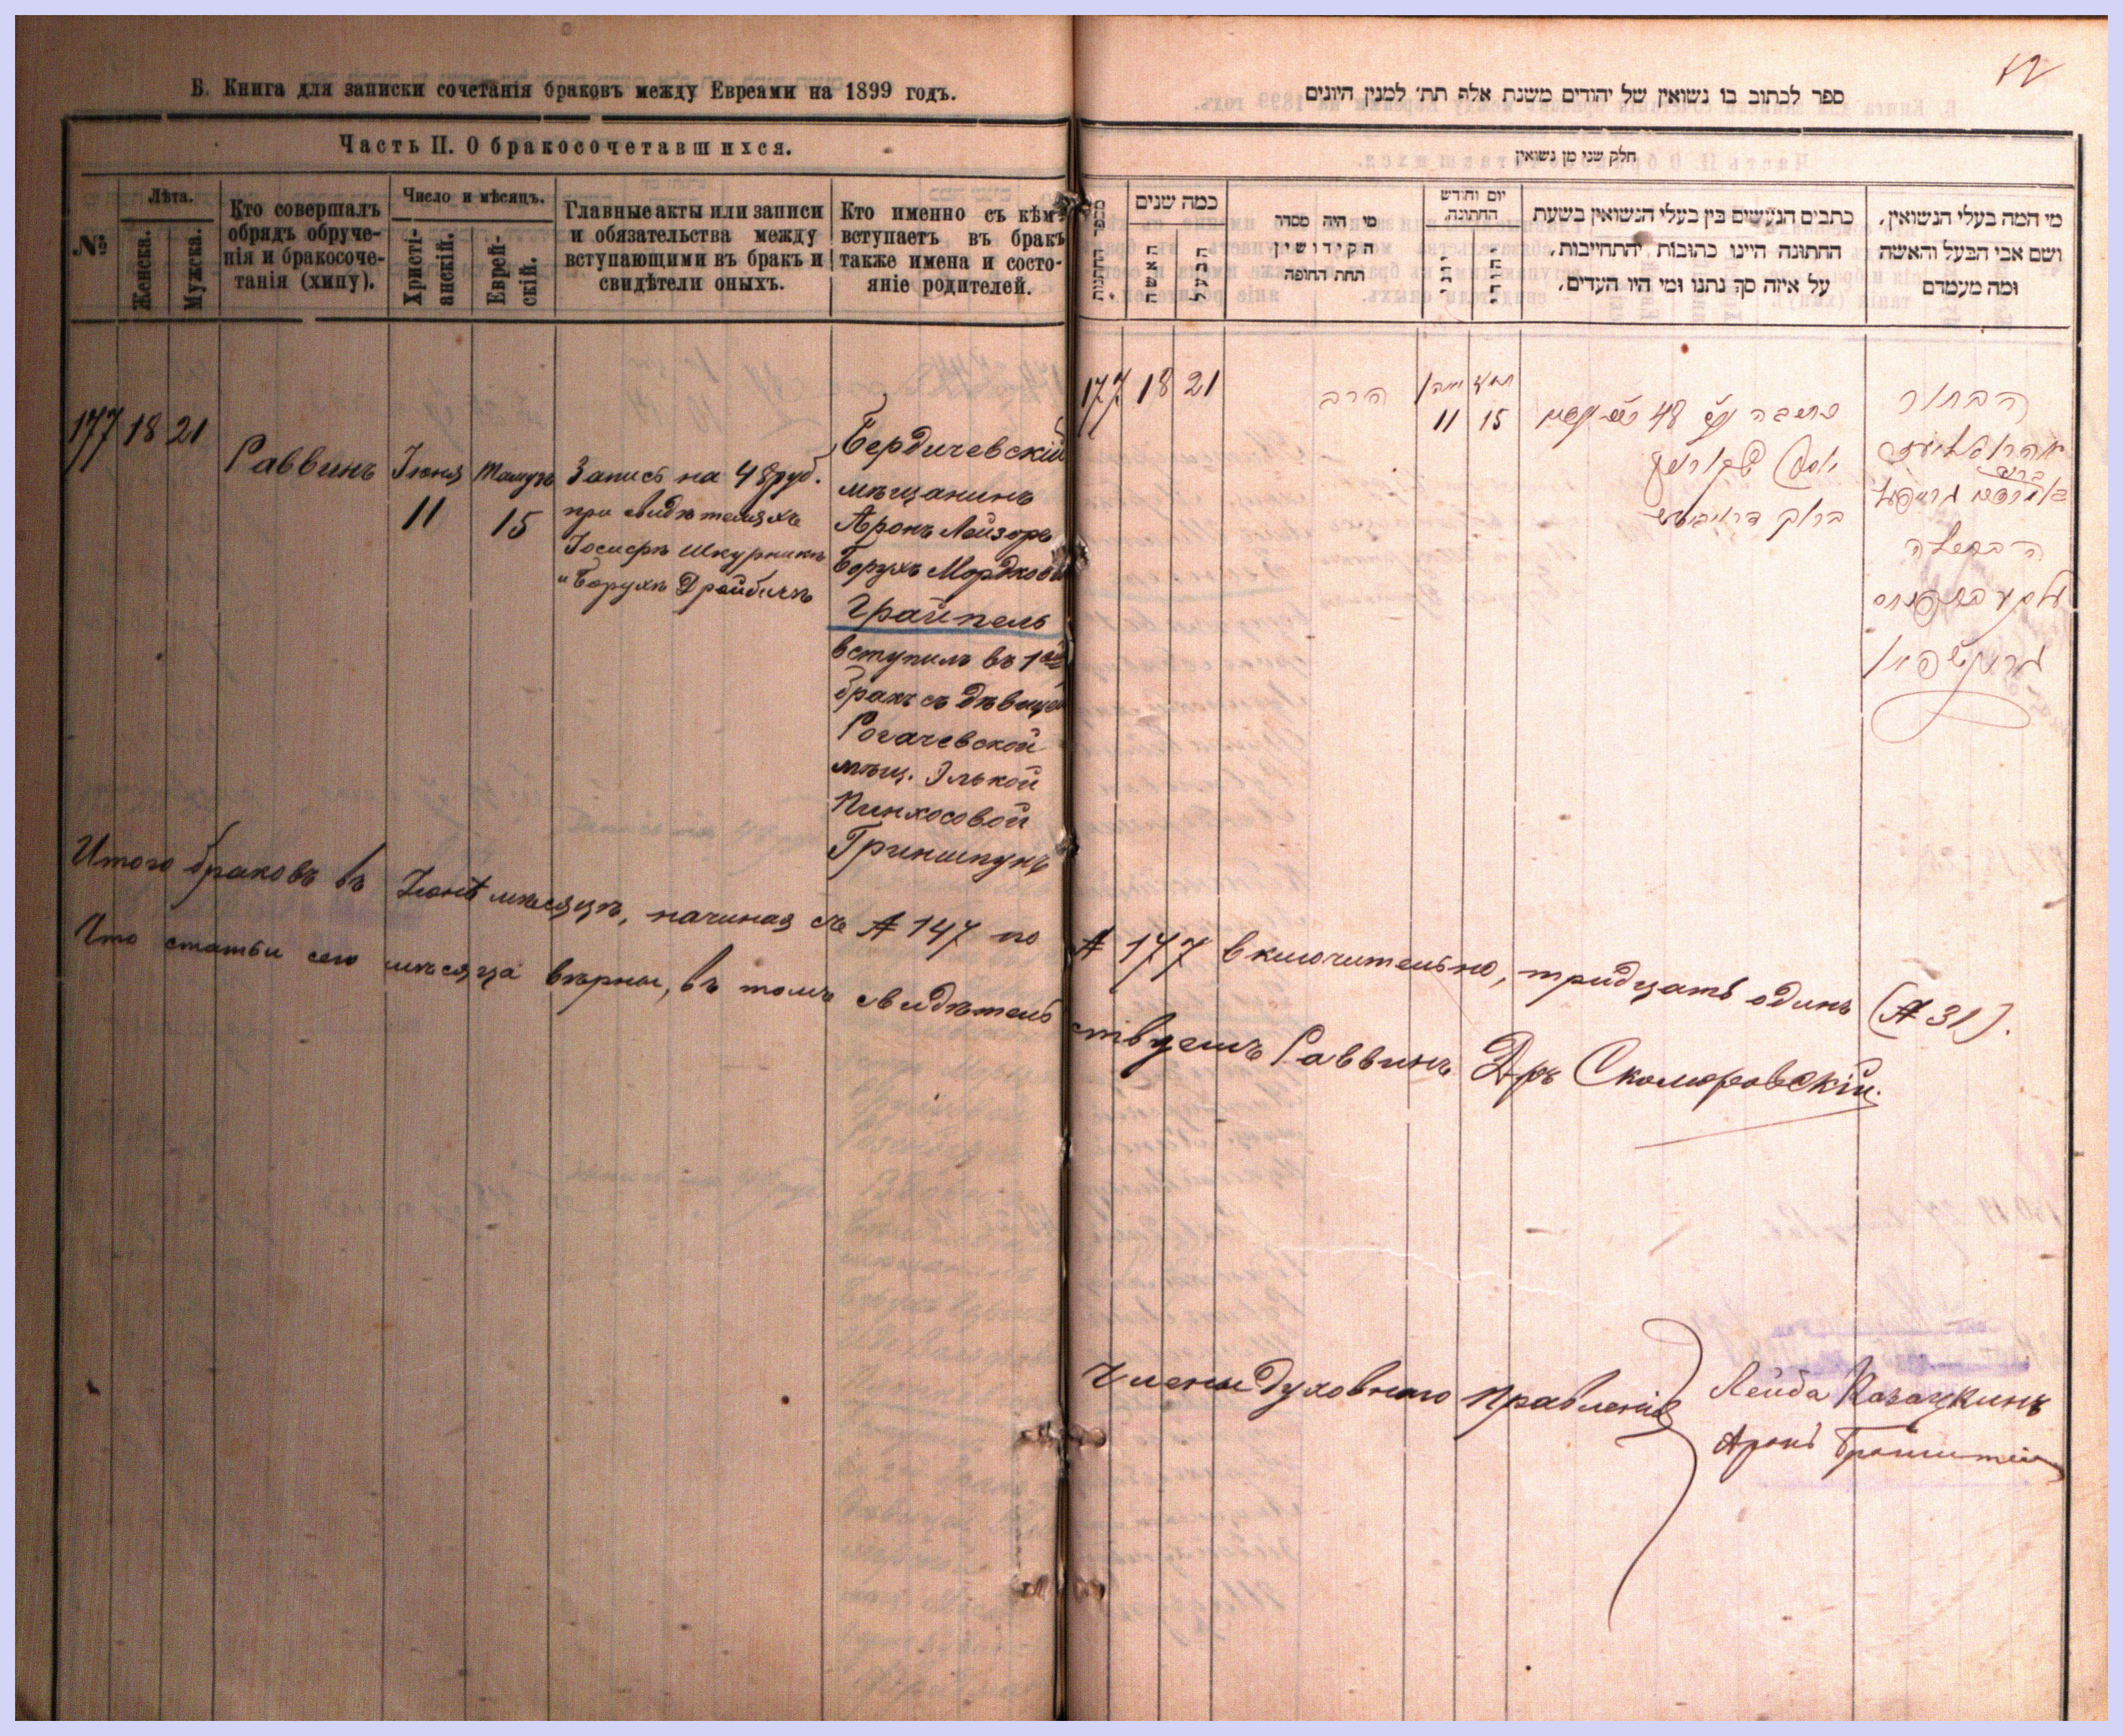 Б. Книга для записки сочетанія браковъ между Евреями на 1899 годъ.
Часть II. О бракосочетавшихся.
№
Лѣта.
Женска.
Мужска.
Кто совершалъ
обрядъ обруче-
нія и бракосоче-
танія (хипу).
Число и мѣсяцъ.
Христі-
анскій.
Еврей-
скій.
Главные акты или записи
и обязательства между
вступающими въ бракъ и
свидѣтели оныхъ.
Кто именно съ кѣмъ
вступаетъ въ бракъ
также имена и состо-
яніе родителей.
177 18 21
Раввинъ
Іюня
11
Тамузъ
15
Запись на 48 руб.
при свидѣтеляхъ
Іосифъ Шкурникъ
и Борухъ Дройбичъ
Бердичевскій
мѣщанинъ
Аронъ Лейзоръ
Борухъ Мордковъ
Грайпель
вступилъ въ 1ый
бракъ съ дѣвицей
Рогачевской
мѣщ. Элькой
Пинхосовой
Гриншпунъ
12
ספר לכתוב בו נשואין של יהודים משנת אלף תת׳ למנין היונים
חלק שני מן נשואין
מספר החתונות
כמה שנים
האשה
הבעל
מי היה מסדר
הקידושין
תחת החופה
יום וחודש
החתונה.
יוני
יהודי
כתבים הנעשים בין בעלי הנשואין בשעת
החתונה היינו כתובות והתחייבות,
על איזה סך נתנו ומי היו העדים,
מי המה בעלי הנשואין,
ושם אבי הבעל והאשה
ומה מעמדם
177 18 21
הרב
11
תמוז
15
48
הבחור
הבתולה
Итого браковъ въ Іюнѣ мѣсяцѣ, начиная съ № 147 по № 177 включительно, тридцать одинъ (№ 31).
Что статьи сего мѣсяца вѣрны, въ томъ свидѣтельствуетъ Раввинъ Дръ Скоморовскій.
Члены Духовнаго Правленія
Лейба Казацкинъ
Аронъ Бронштейн